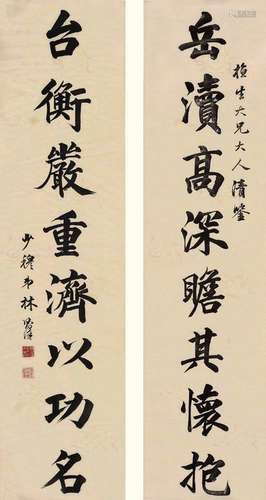 岳瀆高深瞻其懷抱
大兄大人清鑒
台衡嚴重濟以功名
少穆弟林則徐